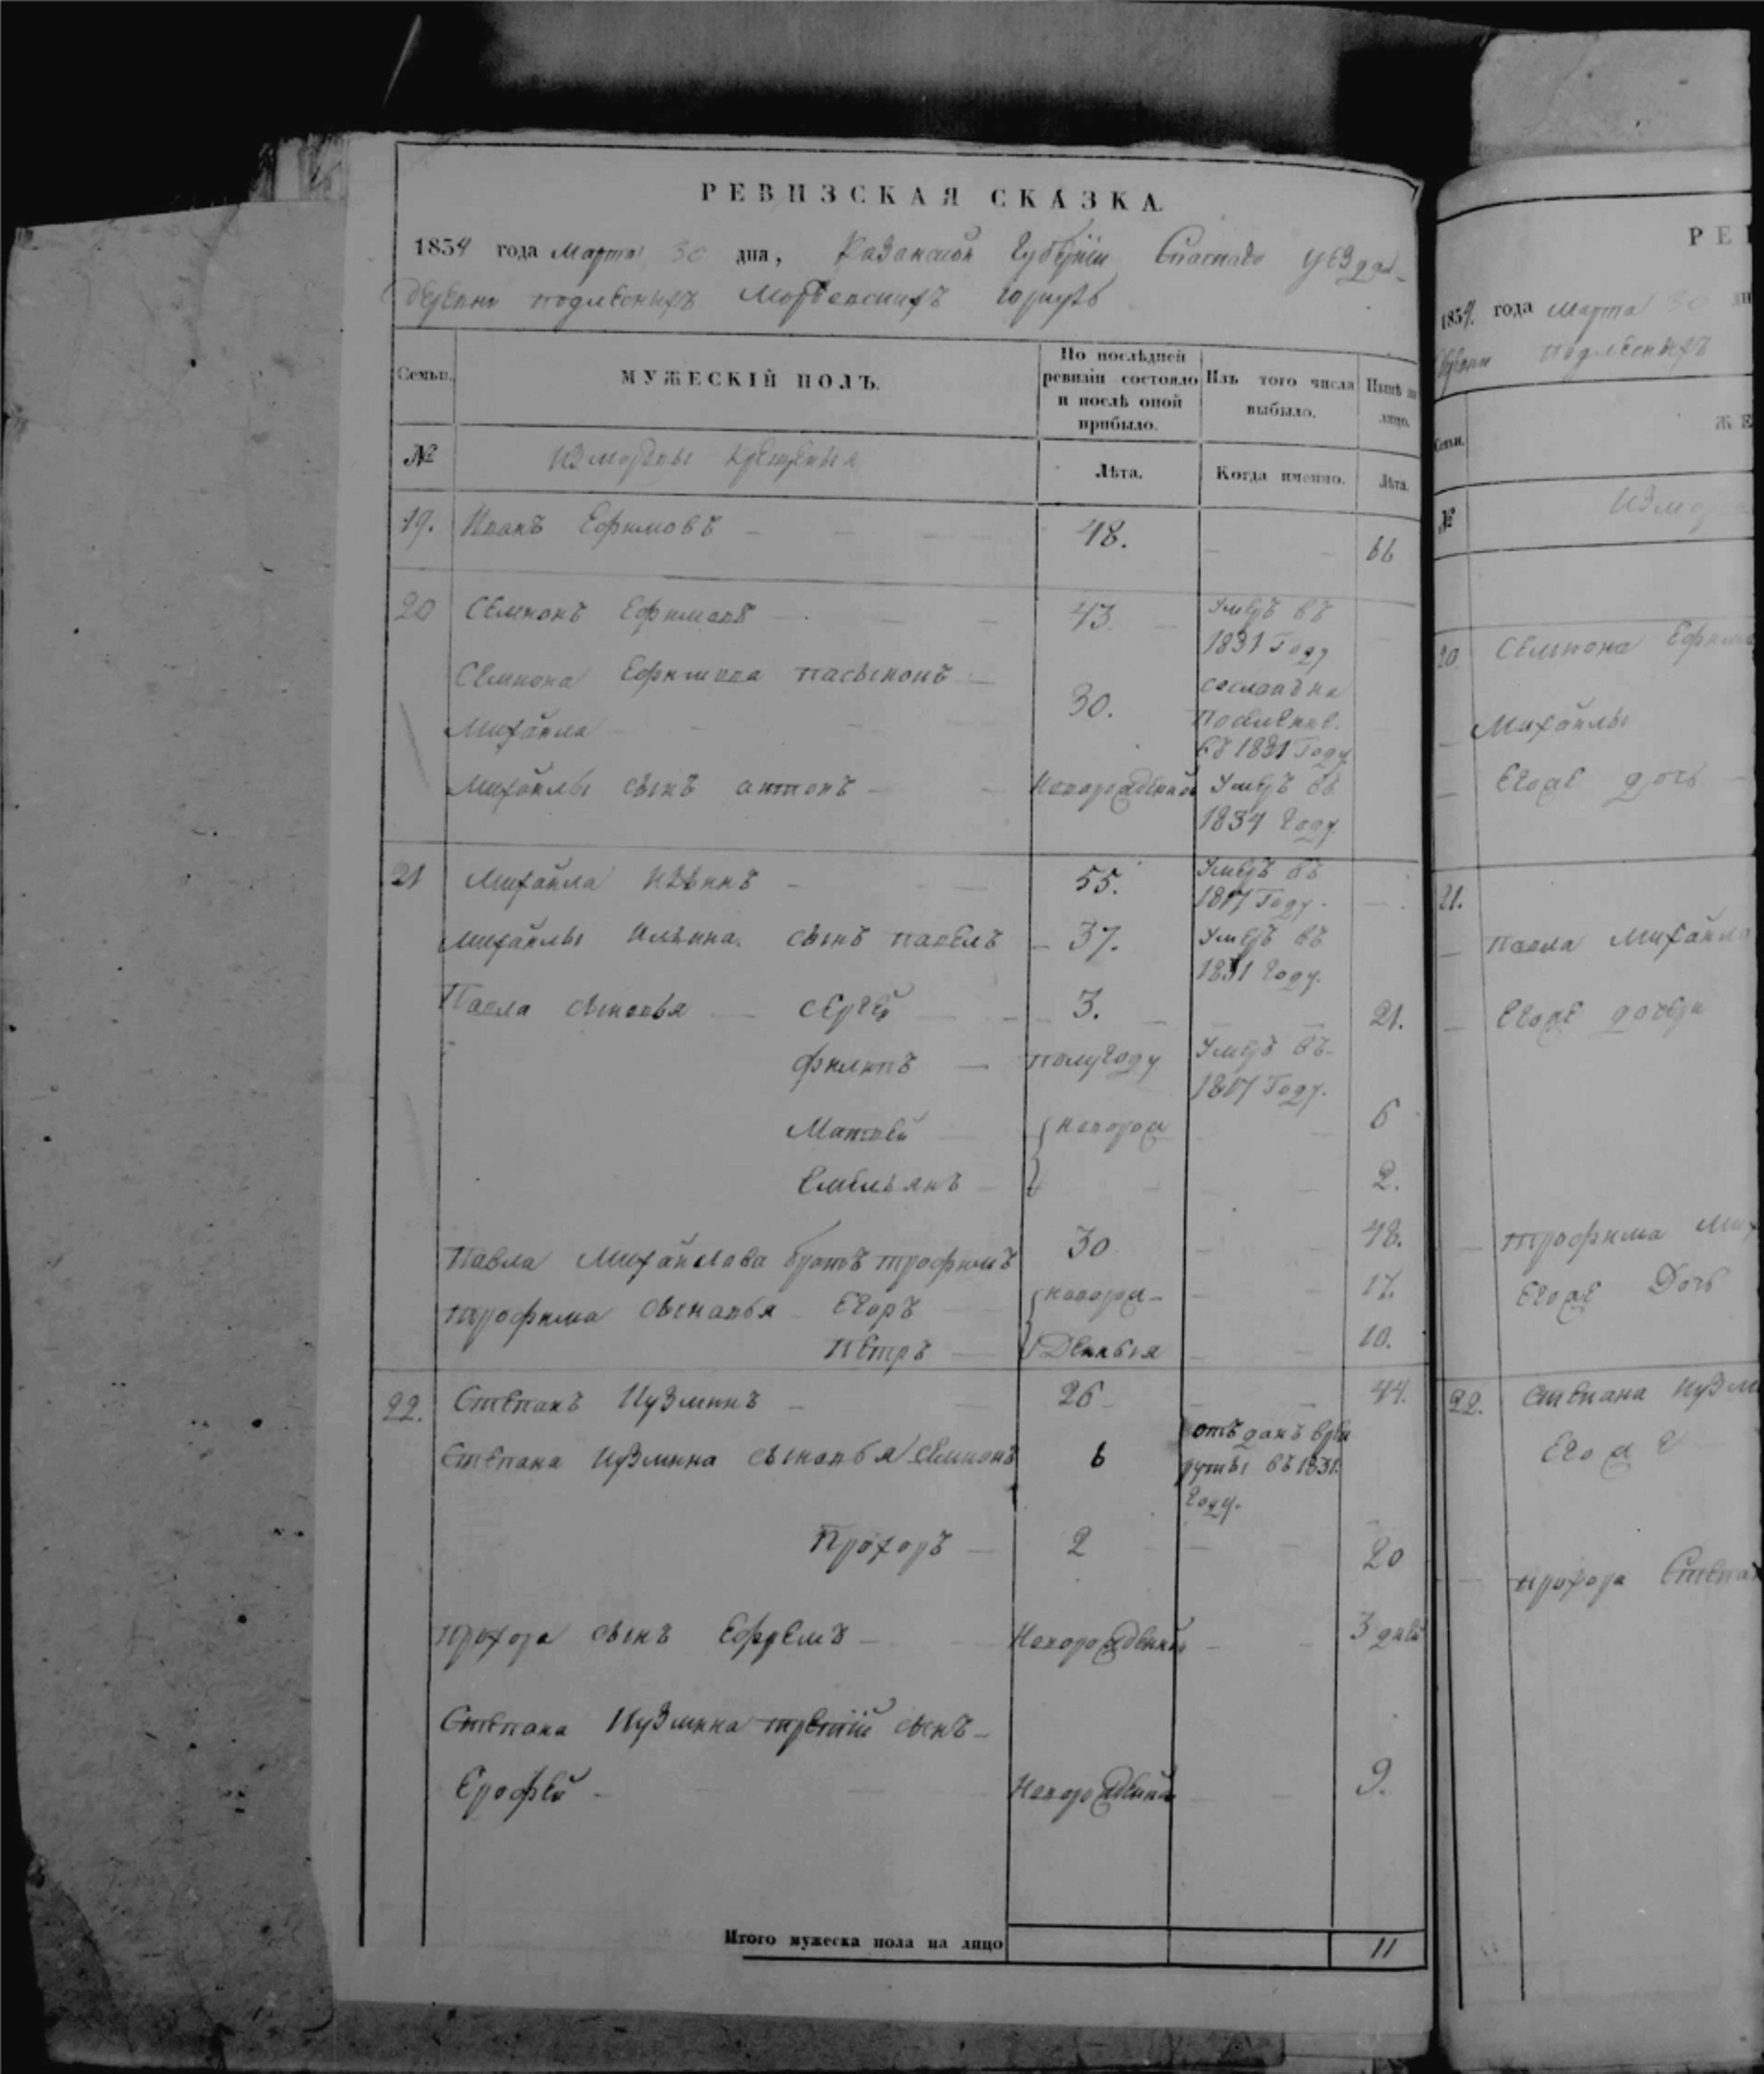 РЕВИЗСКАЯ СКАЗКА.
1834 года Марта 30 дня, Казанской Губернiи Спаскаго уезда
деревни подлесныхъ Мордовскихъ
Семьи. МУЖЕСКIЙ ПОЛЪ. По послѣдней ревизiи состояло и послѣ оной прибыло. Изъ того числа выбыло. Нынѣ на лицо.
№ Измордвы крещеныя Лѣта. Когда именно. Лѣта.
19. Иванъ Ефимовъ 48. 66
20 Семионъ Ефимовъ 43 Умеръ въ
1831 Году
Семиона Ефимова пасынокъ
Михайла 30. сосланъ на
Поселение.
въ 1831 Году
Михайлы сынъ антонъ Новорожденной Умеръ въ
1834 Году.
21 Михайла Ильинъ 55. Умеръ въ
1817 Году.
Михайлы Ильина. сынъ павелъ 37. Умеръ въ
1831 Году.
Павла сыновья Сергей 3. 21.
филипъ полугоду Умеръ въ
1817 Году.
Матвей новорож 6
Емельянъ 2.
Павла Михайлова братъ трофимъ 30 48.
трофима сыновья Егоръ новорож- 17.
Петръ Деныя 10.
22. Степанъ Кузминъ 26 44.
Степана Кузмина сыновья Семионъ 6 отъданъ врек
руты въ 1831.
Году.
Прохоръ 2 20
прохора сынъ Ефремъ Новорожденный 3 дней
Степана Кузмина третiй сынъ
Ерофей Новорожденной 9.
Итого мужеска пола на лицо 11
РЕ
1834. года Марта 30 дн
деревни подлесныхъ
Семьи. ЖЕ
№ Измор
20 Семиона Ефим
Михайлы
Егоже дочь
21.
Павла Михайло
Егоже дочери
трофима Мих
Егоже Дочь
22. Степана Кузм
Егоже
прохора Степан